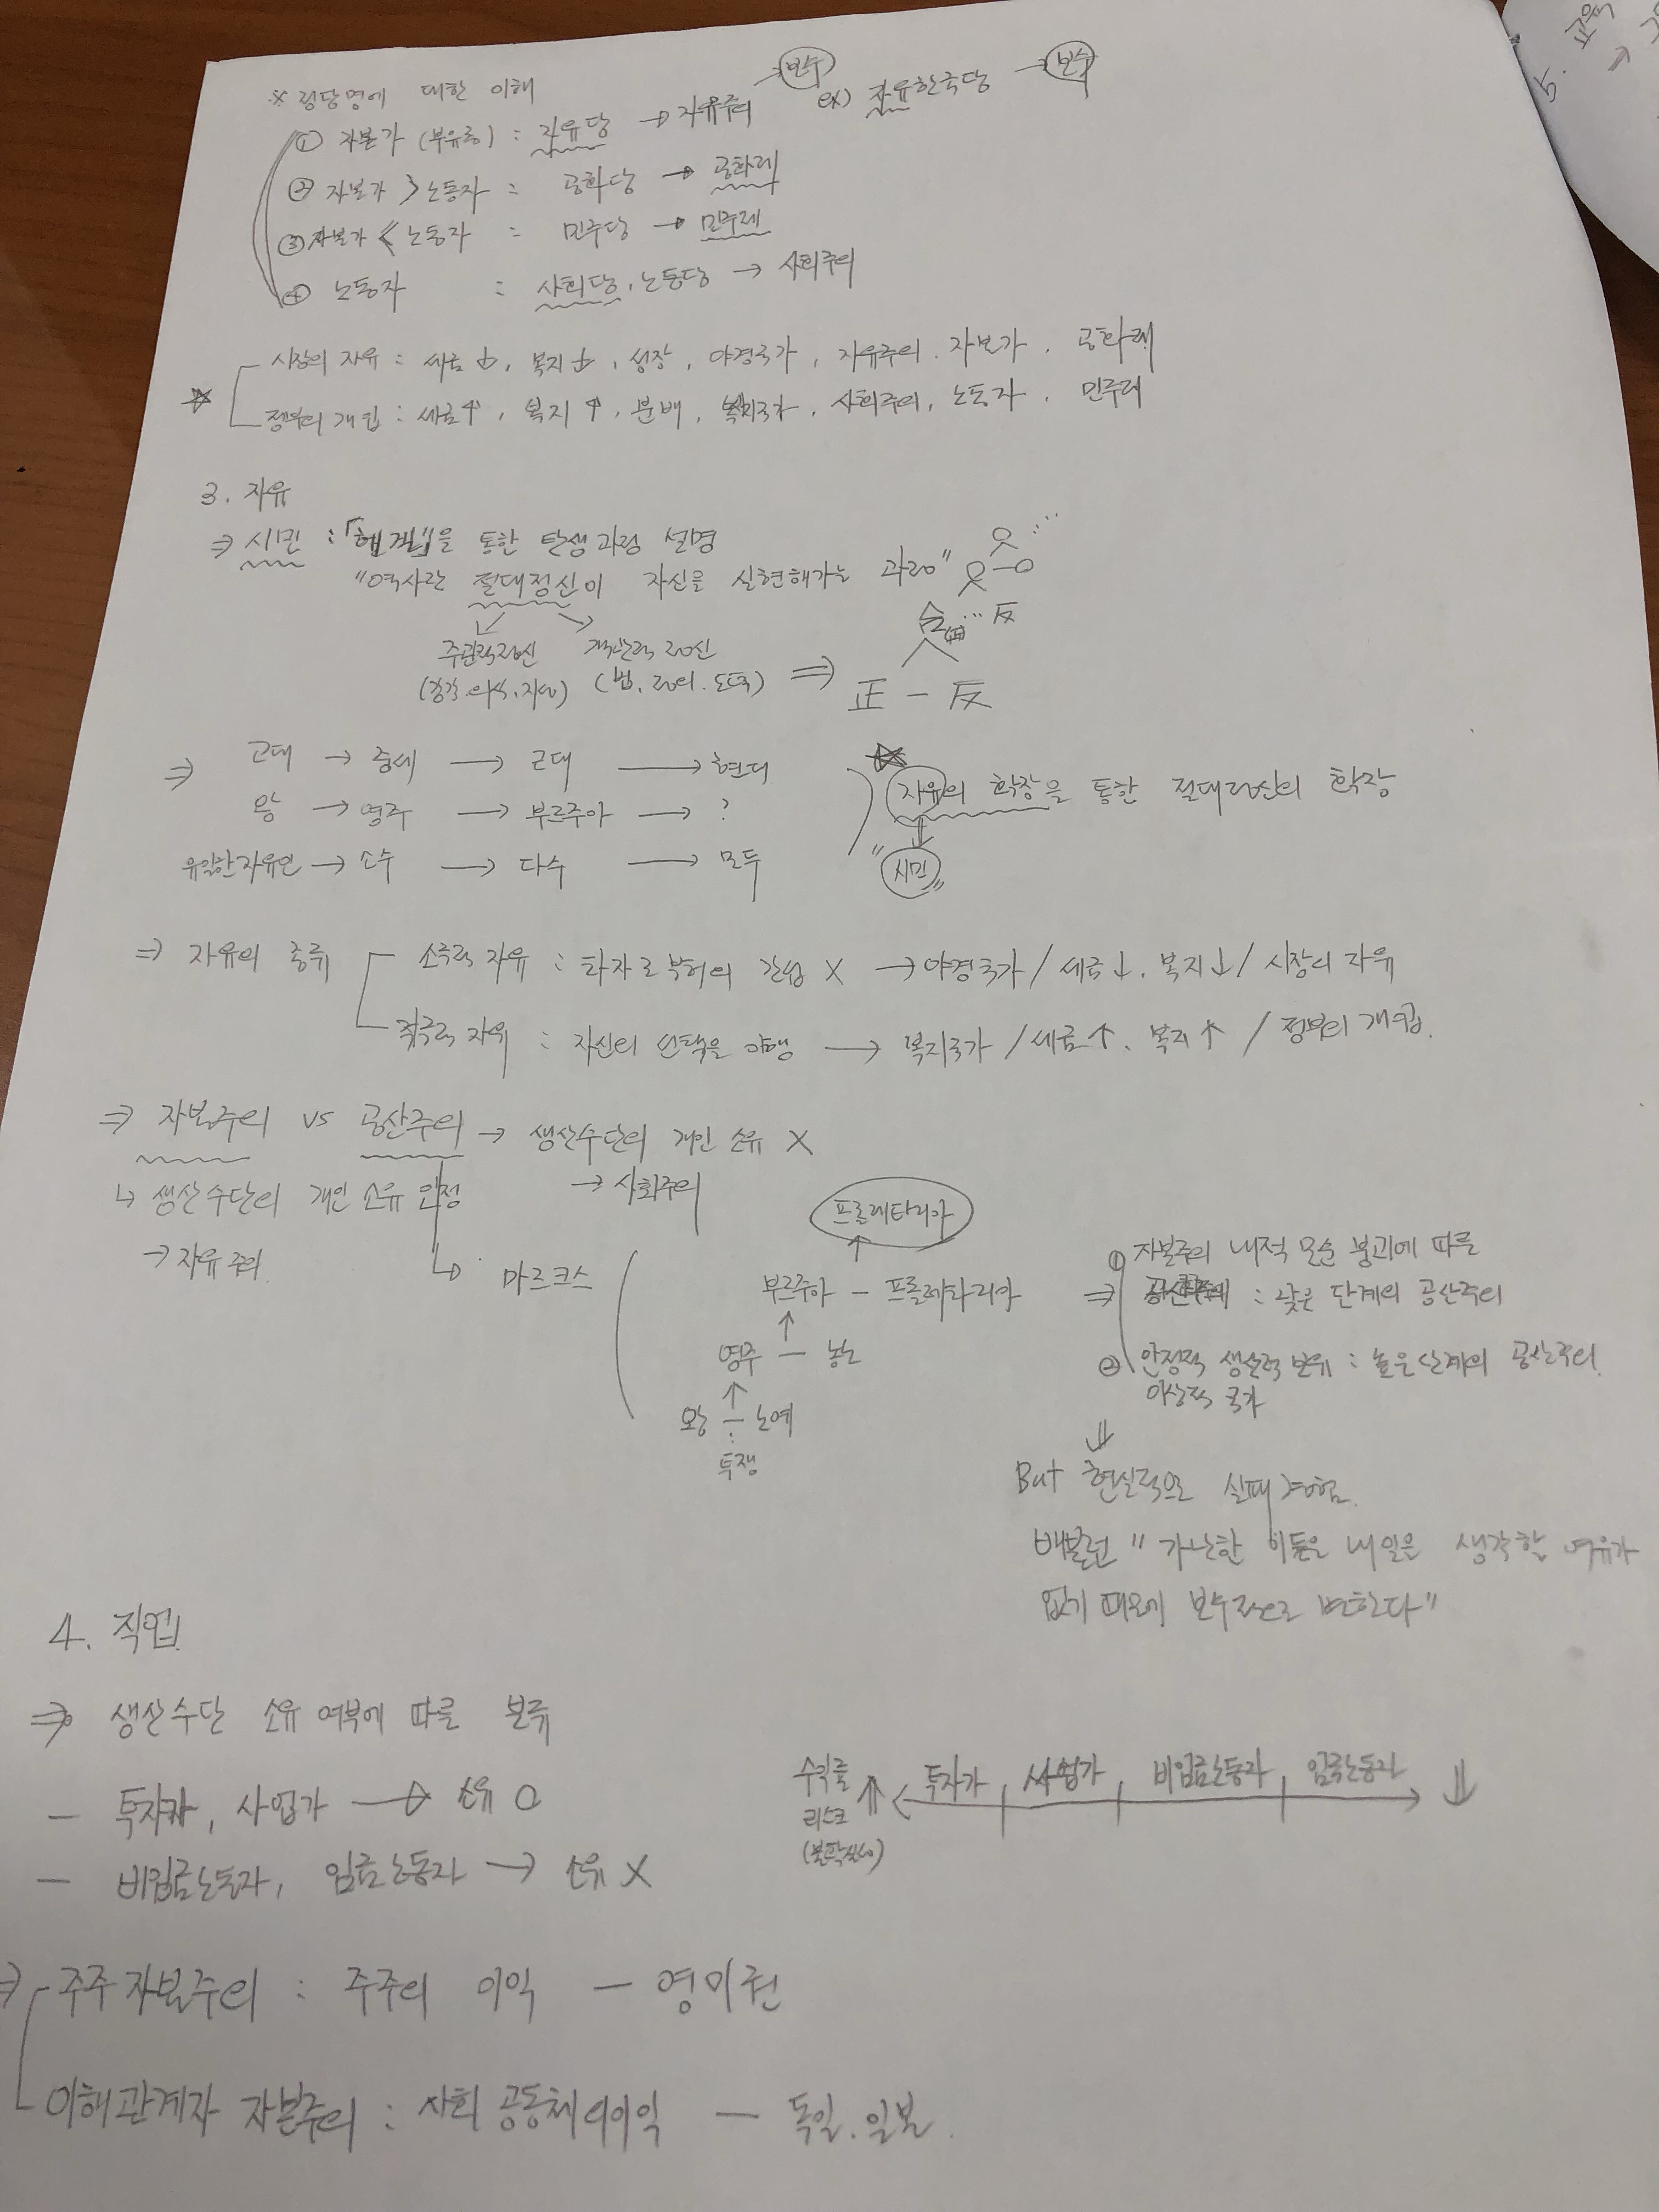 ※ 정당명에 대한 이해
① 자본가 (부유층) : 자유당 → 자유주의 → 보수 ex) 자유한국당 → 보수
② 자본가 > 노동자 : 공화당 → 공화제
③ 자본가 < 노동자 : 민주당 → 민주제
④ 노동자 : 사회당, 노동당 → 사회주의
시장의 자유 : 세금↓, 복지↓, 성장, 야경국가, 자유주의. 자본가. 공화제
☆
정부의 개입 : 세금↑, 복지↑, 분배, 복지국가, 사회주의, 노동자. 민주제
3. 자유
⇒ 시민 : 「헤겔」을 통한 탄생과정 설명
"역사란 절대정신이 자신을 실현해가는 과정"
주관적정신 객관적 정신
(감각.의식.지성) (법. 정의. 도덕) ⇒
合(正) … 反
正 — 反
⇒ 고대 → 중세 → 근대 → 현대
왕 → 영주 → 부르주아 → ?
유일한 자유인 → 소수 → 다수 → 모두
☆ 자유의 확장을 통한 절대정신의 확장
"시민"
⇒ 자유의 종류 소극적 자유 : 타자로부터의 간섭 X → 야경국가 / 세금↓. 복지↓ / 시장의 자유
적극적 자유 : 자신의 선택을 이행 → 복지국가 / 세금↑. 복지↑ / 정부의 개입.
⇒ 자본주의 vs 공산주의 → 생산수단의 개인 소유 X
→ 사회주의
↳ 생산수단의 개인 소유 인정
→ 자유주의.
마르크스
프롤레타리아
↑
부르주아 — 프롤레타리아
↑
영주 — 농노
↑
왕 — 노예
:
투쟁
① 자본주의 내적 모순 붕괴에 따를
⇒ 공산주의 : 낮은 단계의 공산주의
② 안정적 생산력 보유 : 높은 단계의 공산주의.
이상적 국가
⇓
But 현실적으로 실패 경험.
베블런 "가난한 이들은 내일을 생각할 여유가
없기 때문에 보수적으로 변한다"
4. 직업
⇒ 생산수단 소유 여부에 따른 분류
— 투자가, 사업가 → 소유 O
— 비임금노동자, 임금노동자 → 소유 X
수익률 ↑ 투자가 사업가 비임금노동자 임금노동자 ↓
리스크
(불확실성)
⇒ 주주 자본주의 : 주주의 이익 — 영미권
이해관계자 자본주의 : 사회 공동체의 이익 — 독일. 일본.
5. 교육